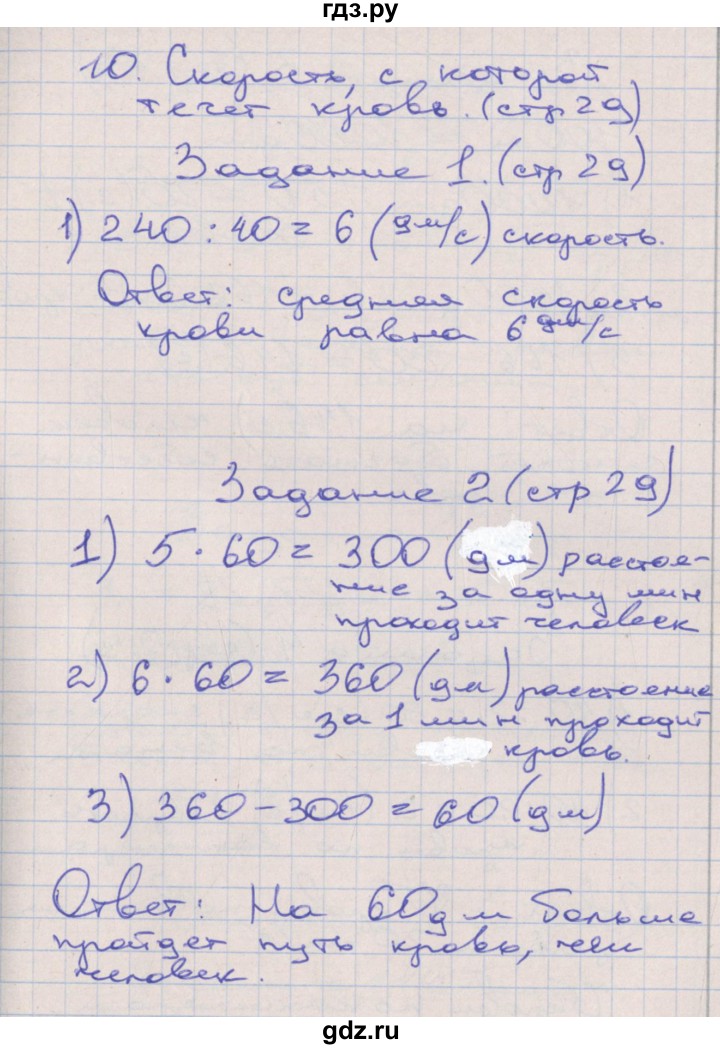 гдз.ру
10. Скорость, с которой
течет кровь. (стр 29)
Задание 1. (стр 29)
1) 240 : 40 = 6 (дм/с) скорость.
Ответ: средняя скорость
крови равна 6 дм/с
Задание 2 (стр 29)
1) 5 · 60 = 300 (дм) расстоя-
ние за одну мин
проходит человек
2) 6 · 60 = 360 (дм) расстоение
за 1 мин проходит
кровь.
3) 360 - 300 = 60 (дм)
Ответ: На 60 дм больше
пройдет путь кровь, чем
человек.
gdz.ru